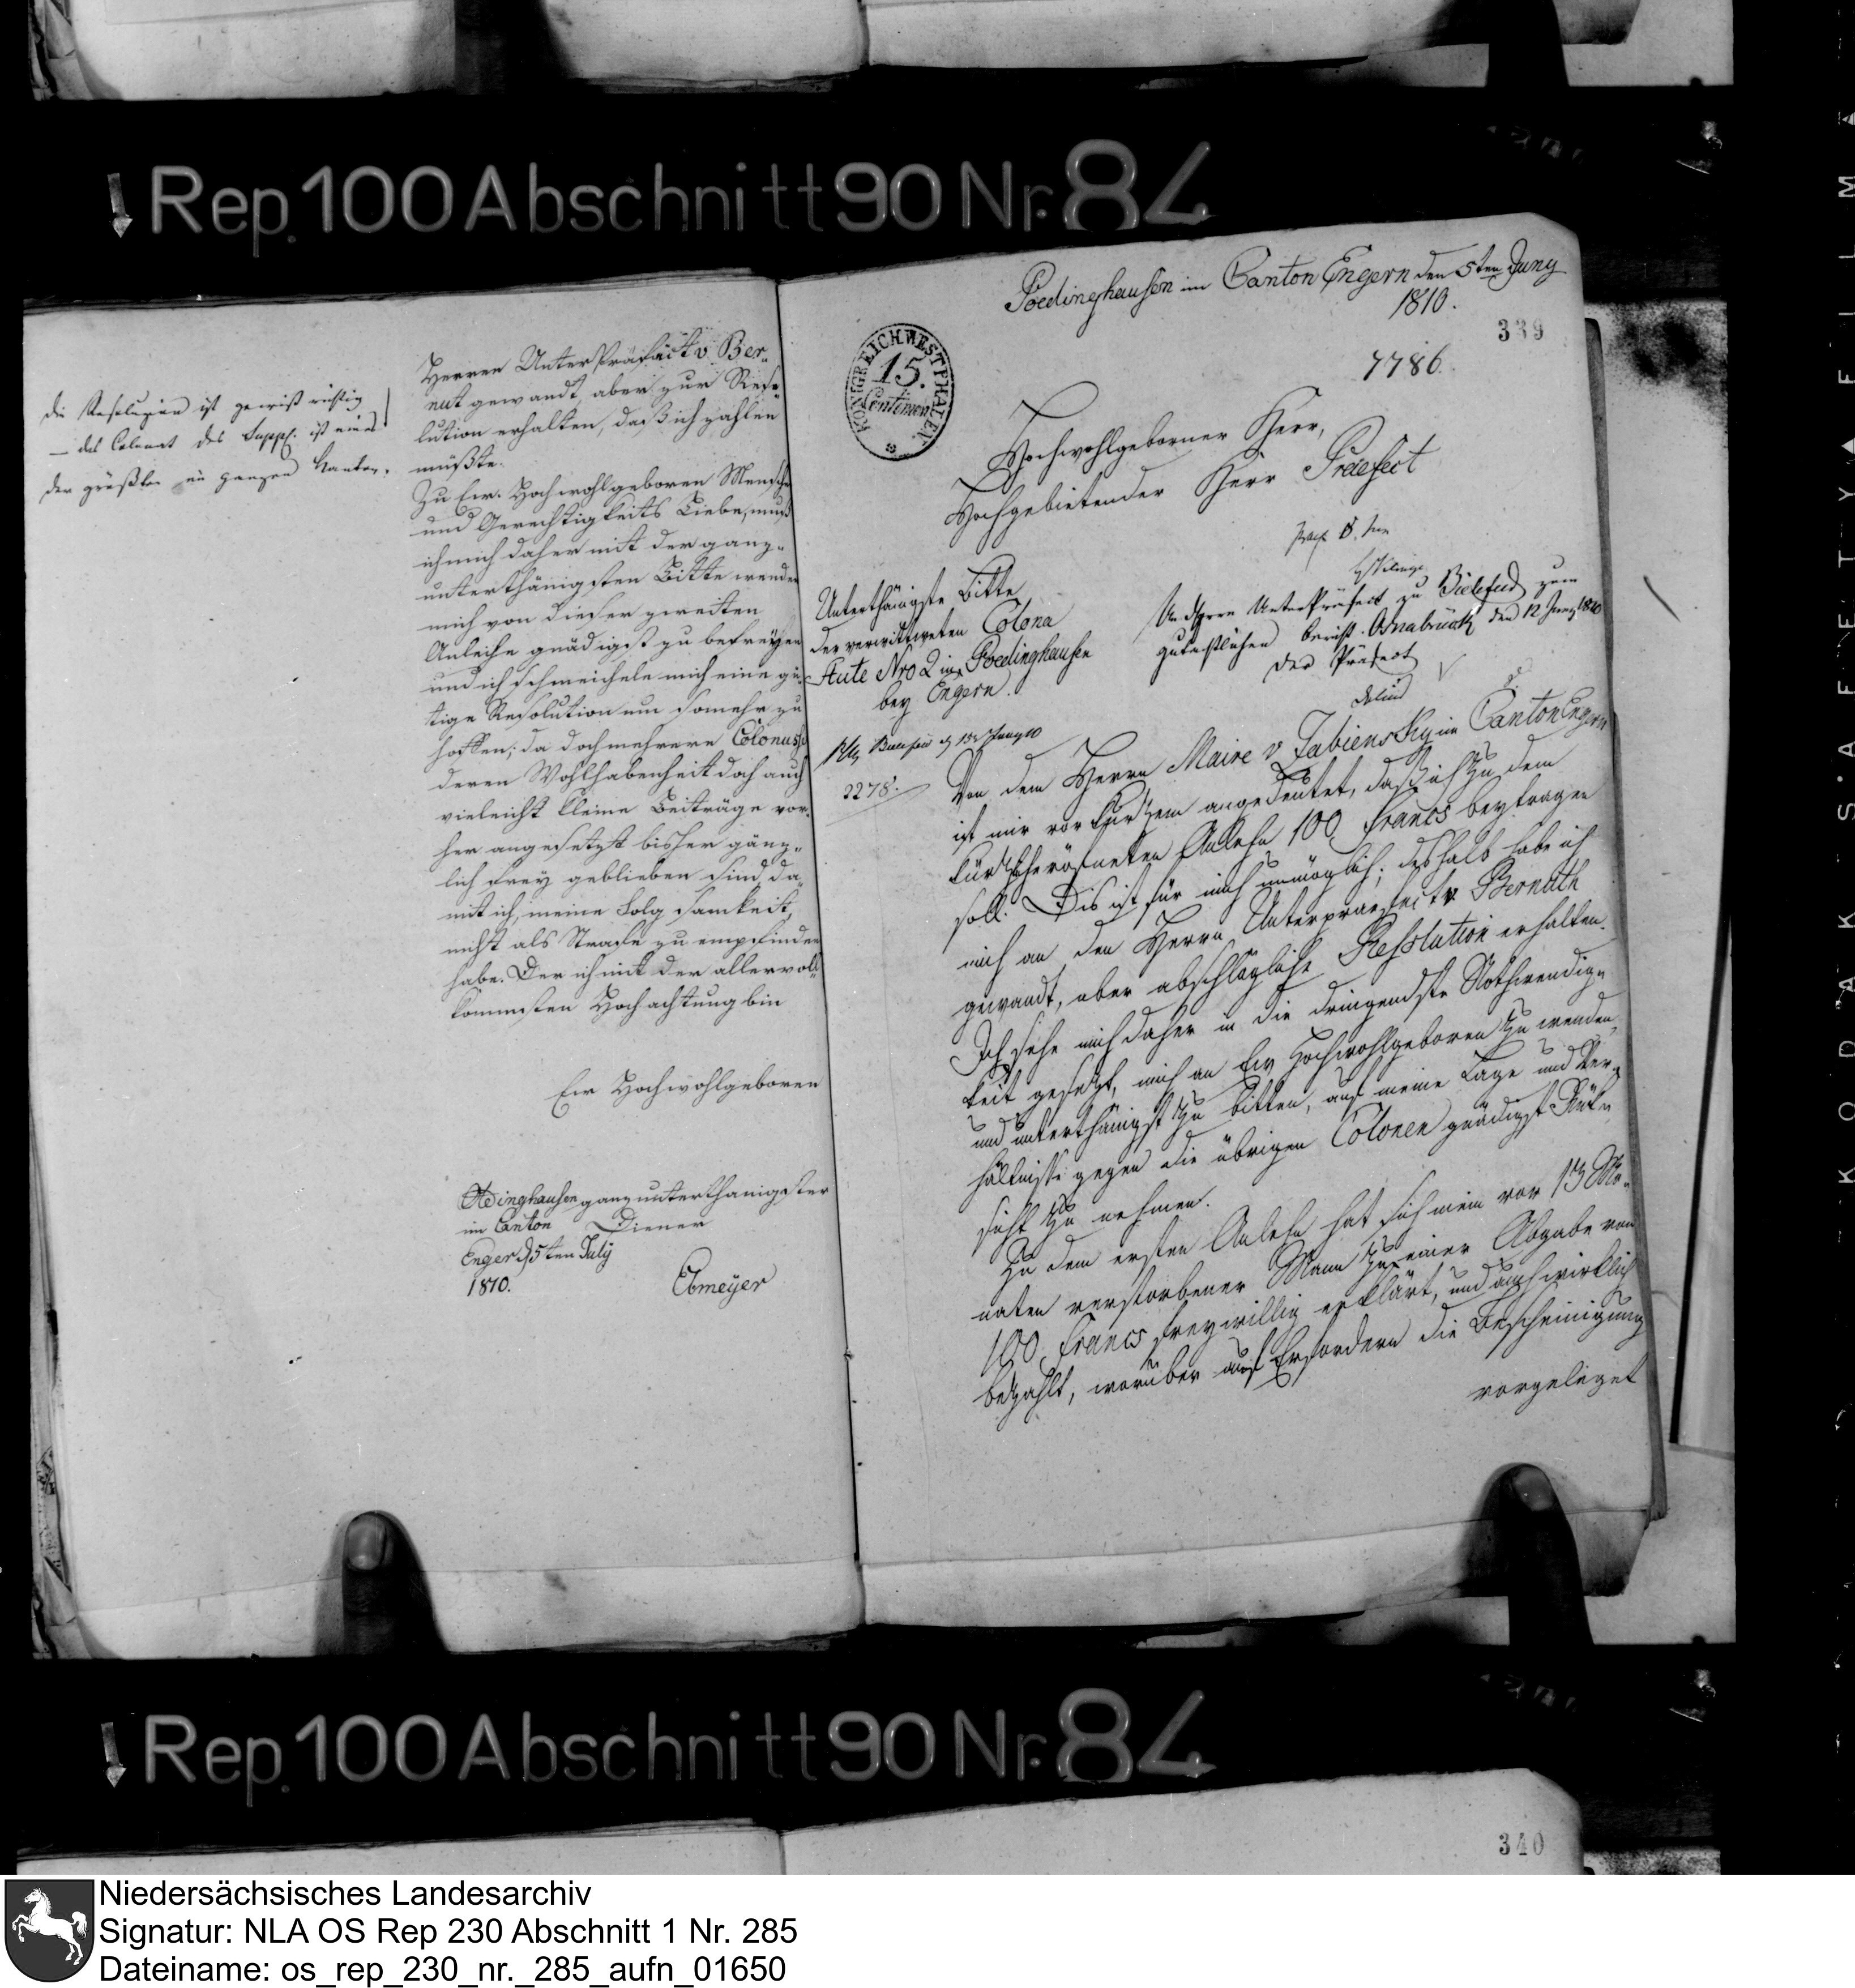 Rep. 100 Abschnitt 90 Nr. 84
die Resolution ist gewiß richtig
– das Colonat des Suppl. ist eines
der größten im ganzen Kanton.
Herren UnterPräfect v. Ber-
nut gewandt, aber zur Reso-
lution erhalten, daß ich zahlen
müßte.
Zu Ew. Hochwohlgeboren Mensch
und Gerechtigkeits Liebe, muß
ich mich daher mit der ganz-
unterthänigsten Bitte wenden
mich von dieser zweiten
Anleihe gnädigst zu befreyen
und ich schmeichele mich eine gü-
tige Resolution um somehr zu
hoffen; da doch mehrere Colonus,
deren Wohlhabenheit doch auch
vieleicht kleine Beiträge vor-
her angesetzt bisher gänz-
lich frey geblieben sind, da-
mit ich, meine Folgsamkeit,
nicht als Strafe zu empfinden
habe. Der ich mit der allervol-
kommsten Hochachtung bin
Ew Hochwohlgeboren
ganz unterthänigster
Diener
Ödinghausen
im Canton
Enger d 5ten July
1810.
Ebmeyer
Poedinghausen im Canton Engern den 5ten Juny
1810.
339
7786.
KÖNIGREICH WESTPHALEN
15.
Centimen
Hochwohlgeborner Herr,
Hochgebietender Herr Praefect
Unterthänigste Bitte
der verwittweten Colona
Aute Nro 2 in Poedinghausen
bey Engern.
An Herrn UnterPräfect zu Bielefeld zum
gutachtlichen Bericht. Osnabrück den 12 Juny 1810
Der Präfect
2278.
Von dem Herrn Maire v Zabiensky im Canton Engern
ist mir vor kurzem angedeutet, daß ich zu dem
kürzlich eröfneten Anlehn 100 francs beytragen
soll. Dis ist für mich unmöglich; deshalb habe ich
mich an den Herrn Unterpraefect v Bernuth
gewandt, aber abschlägliche Resolution erhalten.
Ich sehe mich daher in die dringendste Nothwendig-
keit gesetzt, mich an Ew Hochwohlgeboren zu wenden,
und unterthänigst zu bitten, auf meine Lage und Ver-
hältnisse gegen die übrigen Colonen gnädigst Rük-
sicht zu nehmen.
Zu dem ersten Anlehn hat sich mein vor 13 Mo-
naten verstorbener Mann zu einer Abgabe von
100 francs freywillig erklärt, und auch wirklich
bezahlt, worüber auf Erfordern die Bescheinigung
vorgeleget
Rep. 100 Abschnitt 90 Nr. 84
340
KODAK SAFETY FILM
Niedersächsisches Landesarchiv
Signatur: NLA OS Rep 230 Abschnitt 1 Nr. 285
Dateiname: os_rep_230_nr._285_aufn_01650